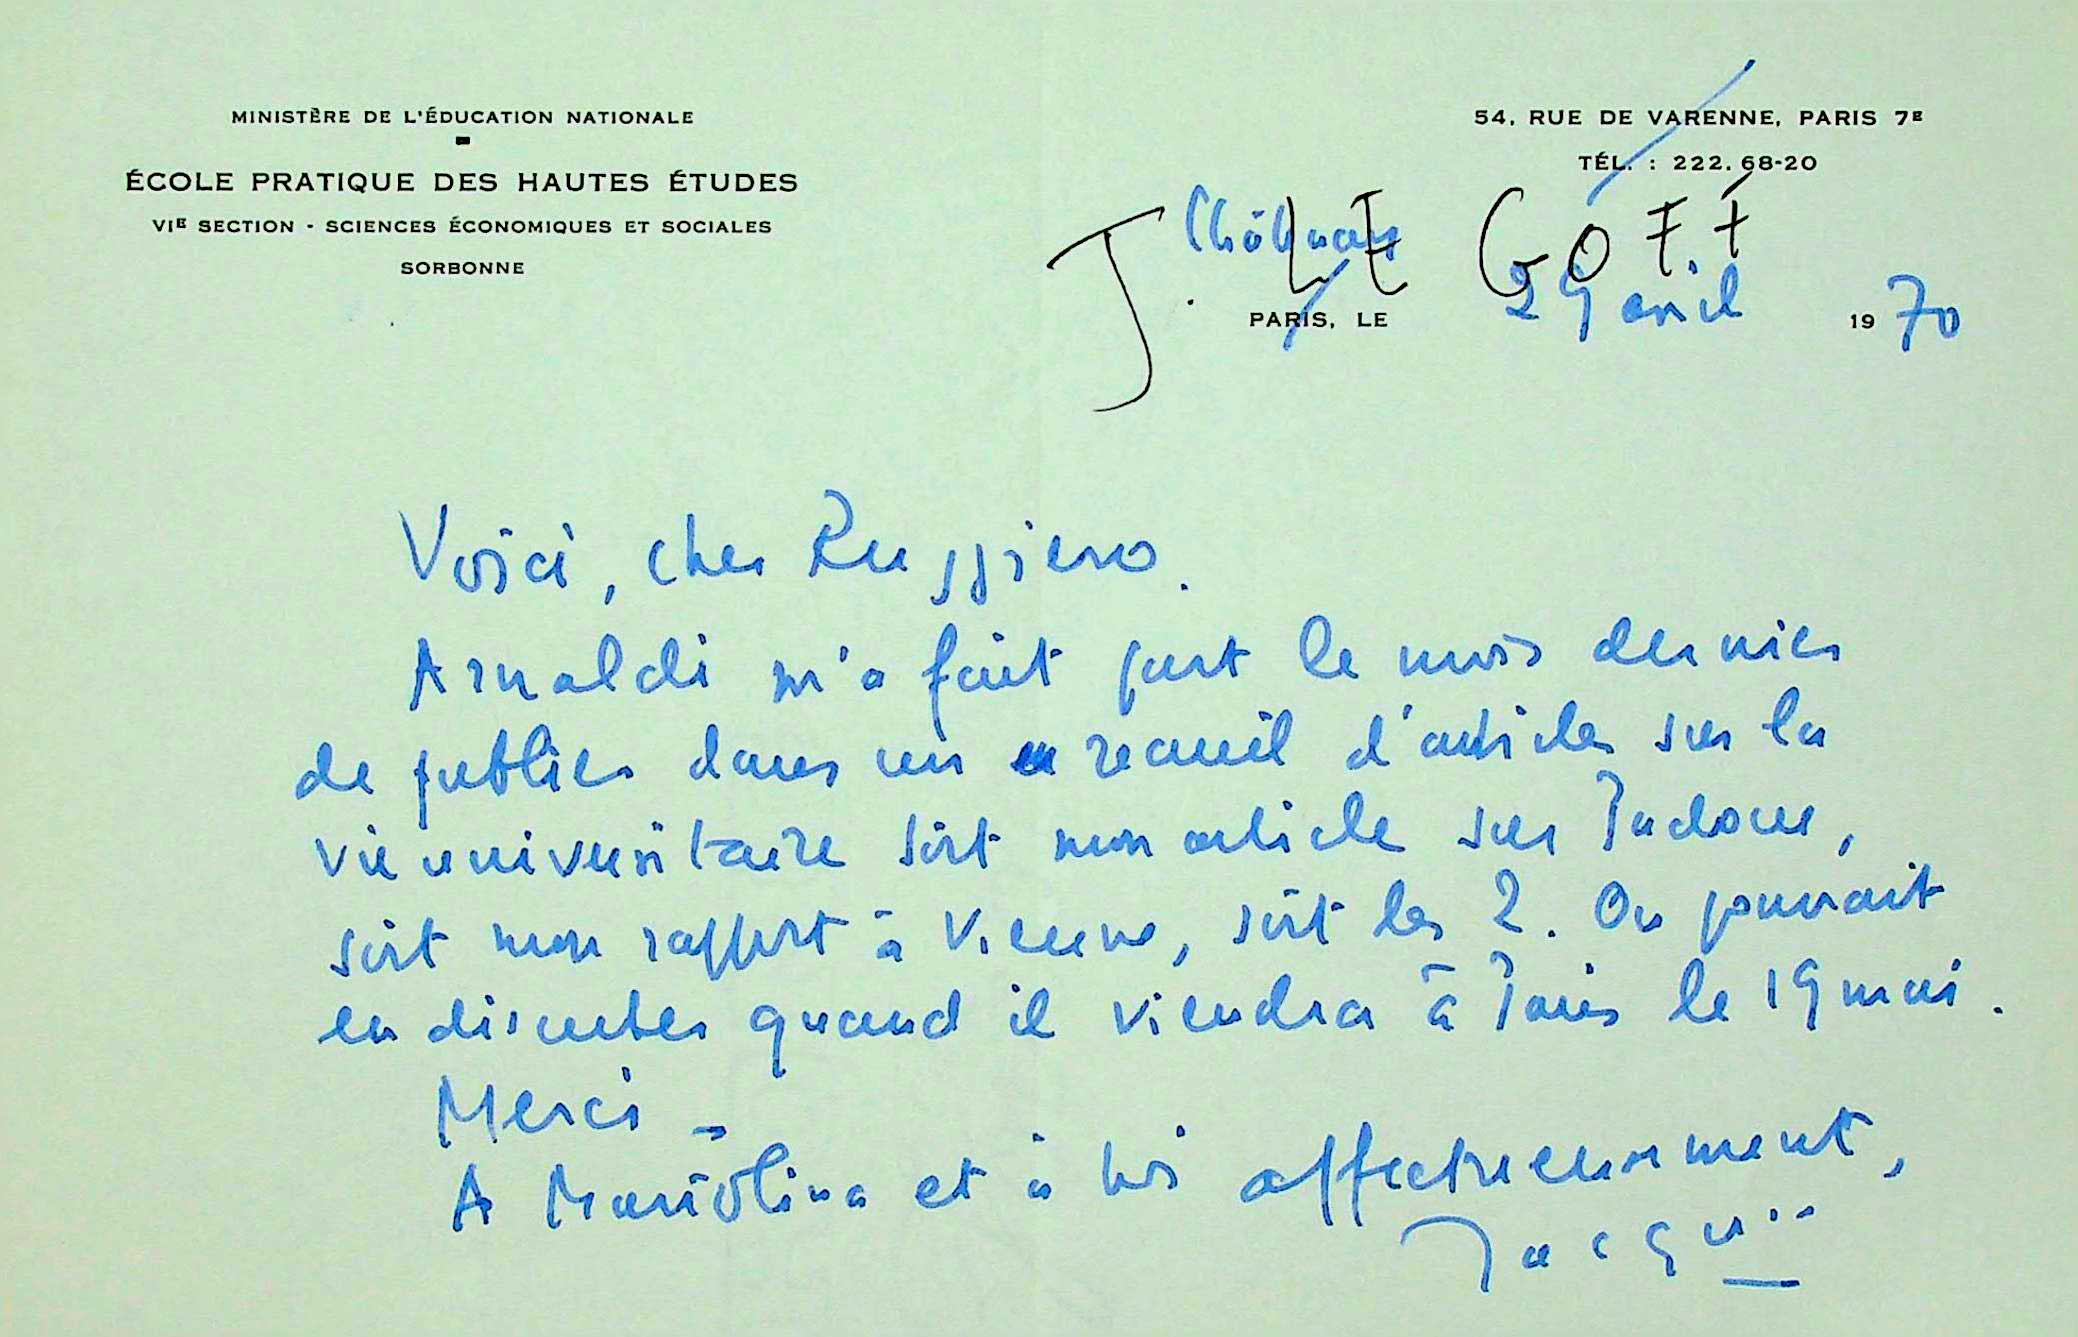 MINISTÈRE DE L'ÉDUCATION NATIONALE
ÉCOLE PRATIQUE DES HAUTES ÉTUDES
VIE SECTION - SCIENCES ÉCONOMIQUES ET SOCIALES
SORBONNE
54, RUE DE VARENNE, PARIS 7E
TÉL. : 222.68-20
J. LE GOFF
PARIS, LE 29 avril 1970
Voici, cher Ruggiero.
Arnaldi m'a fait part le mois dernier
de publier dans un recueil d'articles sur la
vie universitaire soit mon article sur Padoue,
soit mon rapport à Vienne, soit les 2. On pourrait
en discuter quand il viendra à Paris le 19 mai.
Merci -
A Mariolina et à toi affectueusement,
Jacques